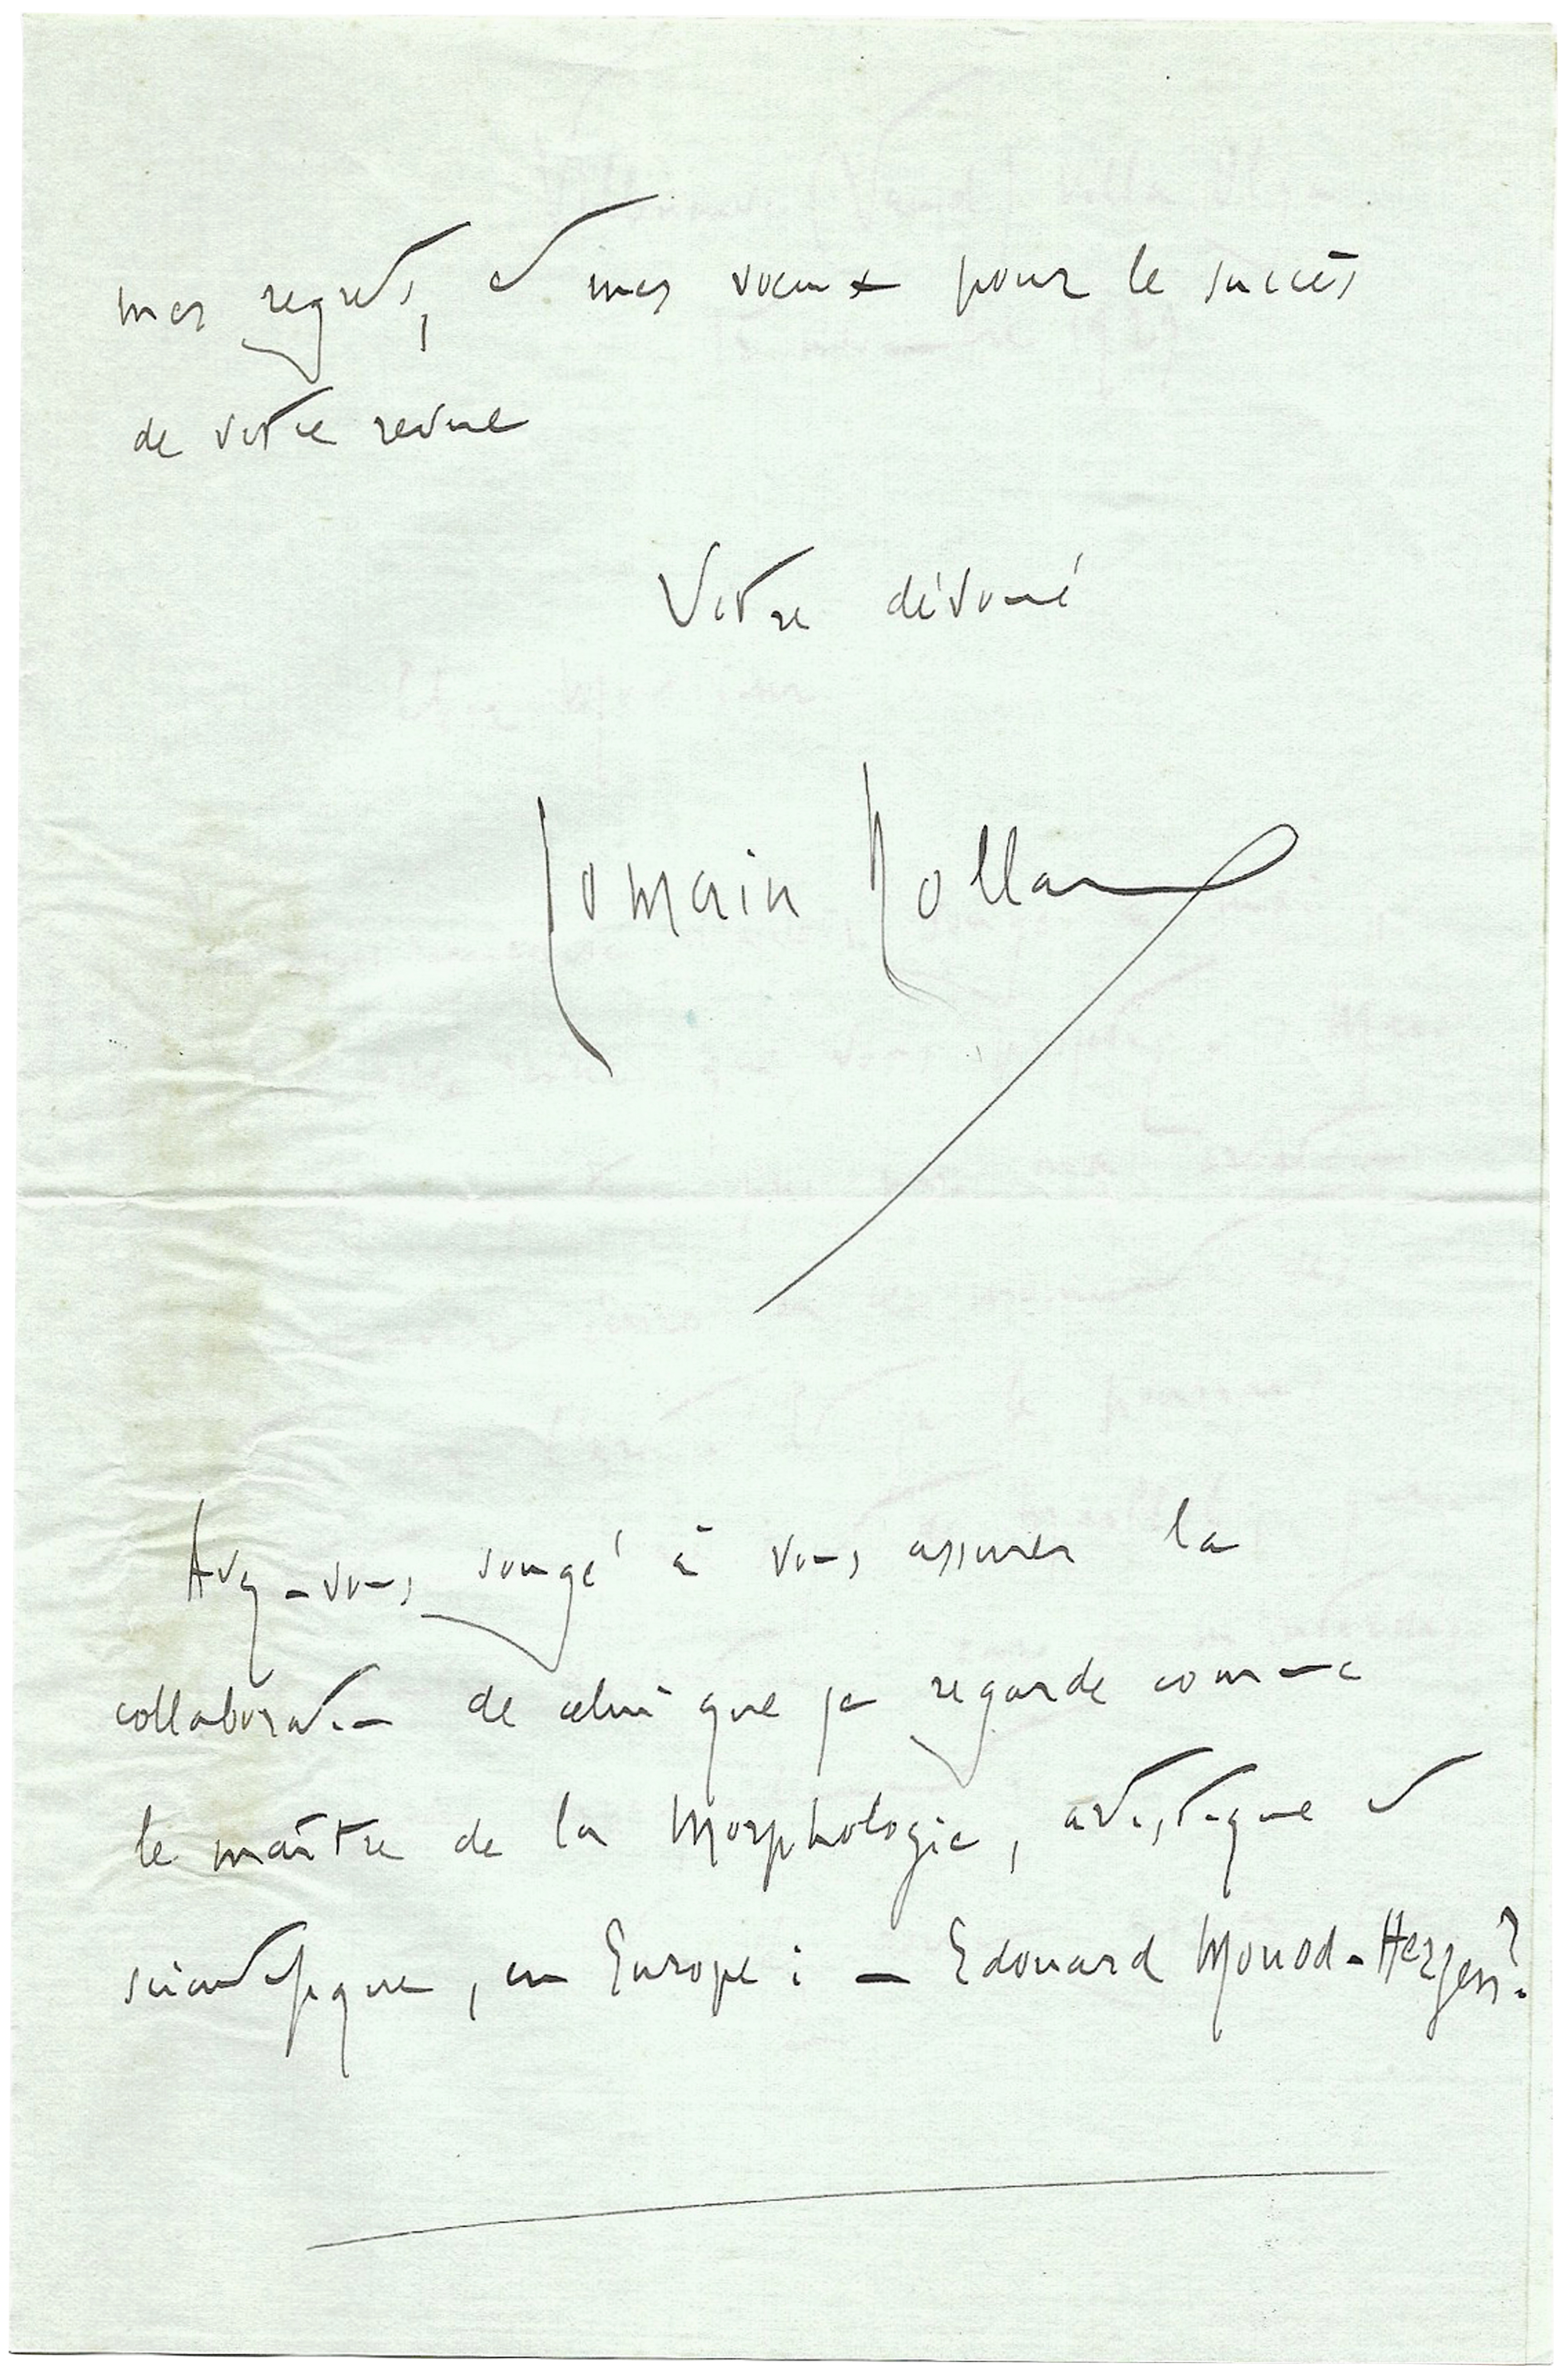 mes regrets, et mes vœux pour le succès
de votre revue
Votre dévoué
Romain Rolland
Avez-vous songé à vous assurer la
collaboration de celui que je regarde comme
le maître de la Morphologie, artistique et
scientifique, en Europe : — Edouard Monod-Herzen ?